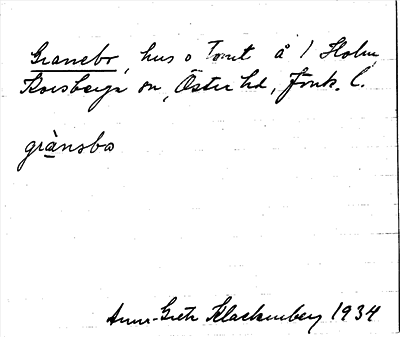 Granebo, hus o Tomt å 1 Holm,
Korsberga sn, Östra hd, Jönk. l.
gränsbo
Anna-Greta Klackenberg 1934